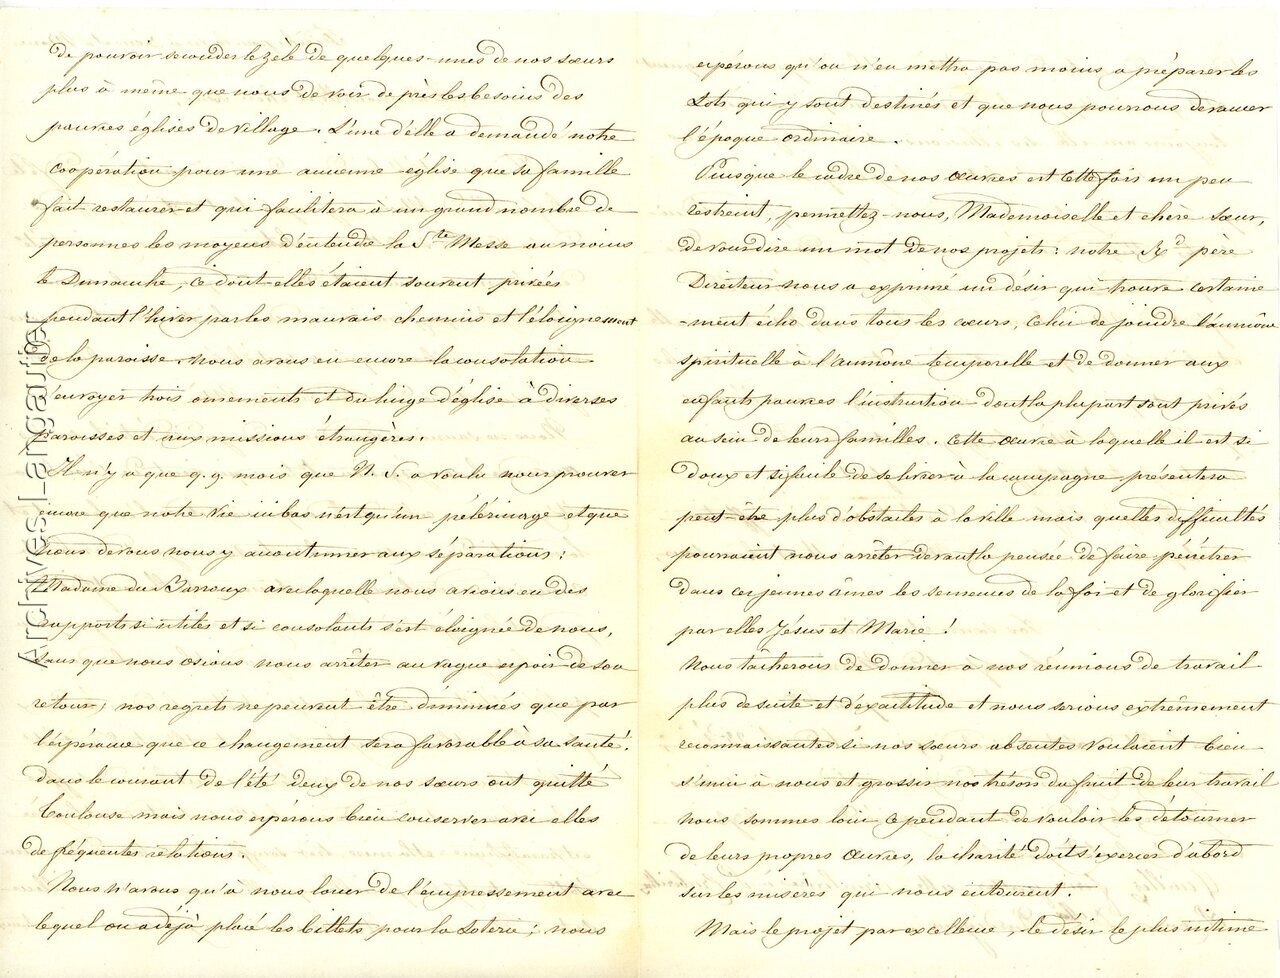 de pouvoir seconder le zèle de quelques-unes de nos sœurs
plus à même que nous de voir de près les besoins des
pauvres églises de village. L'une d'elle a demandé notre
coopération pour une ancienne église que sa famille
fait restaurer et qui facilitera à un grand nombre de
personnes les moyens d'entendre la Ste Messe au moins
le Dimanche, ce dont elles étaient souvent privées
pendant l'hiver par les mauvais chemins et l'éloignement
de la paroisse. Nous avons eu encore la consolation
d'envoyer trois ornements et du linge d'église à diverses
paroisses et aux missions étrangères.
Il n'y a que q.q. mois que N. S. a voulu nous prouver
encore que notre vie ici bas n'est qu'un pélérinage et que
nous devons nous y accoutumer aux séparations :
Madame du Barroux avec laquelle nous avions eu des
rapports si utiles et si consolants s'est éloignée de nous,
sans que nous osions nous arrêter au vague espoir de son
retour ; nos regrets ne peuvent être diminués que par
l'espérance que ce changement sera favorable à sa santé.
dans le courant de l'été deux de nos sœurs ont quitté
Toulouse mais nous espérons bien conserver avec elles
de fréquentes relations.
Nous n'avons qu'à nous louer de l'empressement avec
lequel on a déjà placé les billets pour la Loterie ; nous
espérons qu'on n'en mettra pas moins a préparer les
Lots qui y sont destinés et que nous pourrons devancer
l'époque ordinaire.
Puisque le cadre de nos Œuvres est cette fois un peu
restreint, permettez-nous, Mademoiselle et chère sœur,
de vous dire un mot de nos projets : notre Rd père
Directeur nous a exprimé un désir qui trouve certaine
-ment écho dans tous les cœurs, celui de joindre l'aumône
spirituelle à l'aumône temporelle et de donner aux
enfants pauvres l'instruction dont la plupart sont privés
au sein de leurs familles. Cette œuvre à laquelle il est si
doux et si facile de se livrer à la campagne présentera
peut être plus d'obstacles à la ville mais quelles difficultés
pourraient nous arrêter devant la pensée de faire pénétrer
dans ces jeunes âmes les semences de la foi et de glorifier
par elles Jésus et Marie !
Nous tâcherons de donner à nos réunions de travail
plus de suite et d'exactitude et nous serions extrêmement
reconnaissantes si nos sœurs absentes voulaient bien
s'unir à nous et grossir nos trésors du fruit de leur travail
nous sommes loin cependant de vouloir les détourner
de leurs propres Œuvres, la charité doit s'exercer d'abord
sur les misères qui nous entourent.
Mais le projet par excellence, le désir le plus intime
Archives Langautier